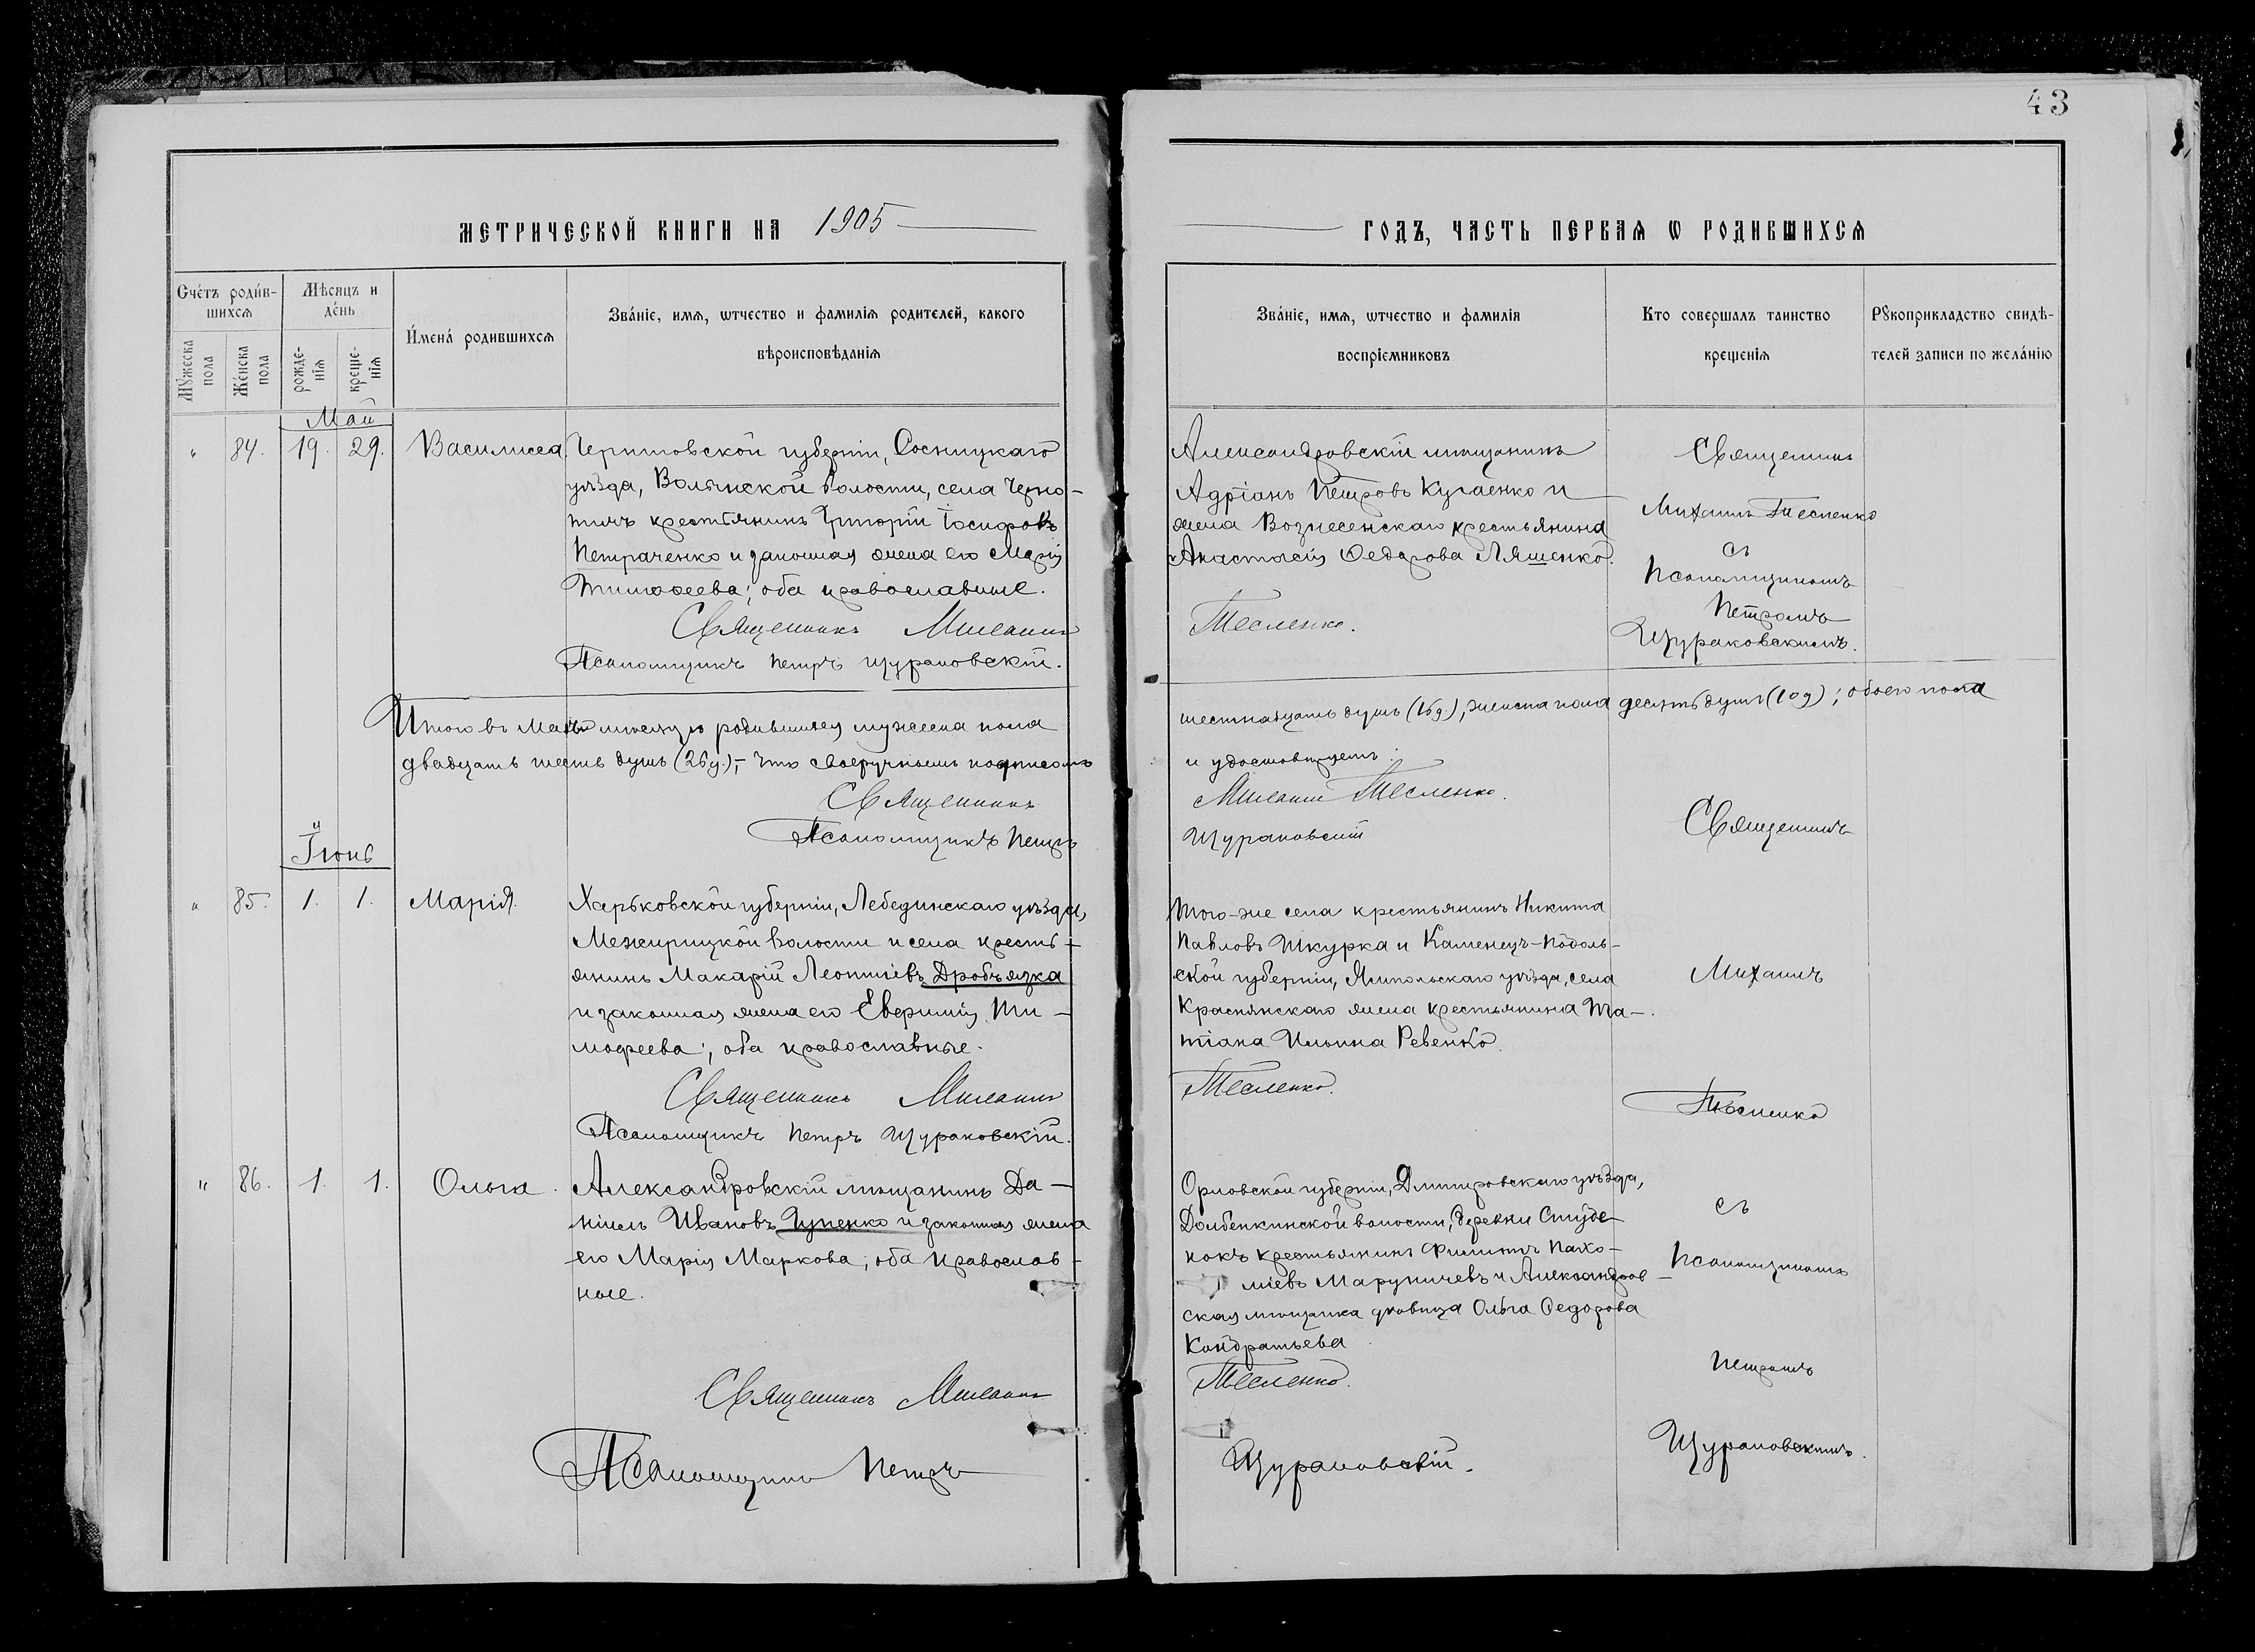 43
МЕТРИЧЕСКОЙ КНИГИ НА 1905
ГОДЪ, ЧАСТЬ ПЕРВАЯ Ѡ РОДИВШИХСЯ
Счетъ родив-
шихся
Мѣсяцъ и
день
Имена родившихся
Званіе, имя, ѡтчество и фамилія родителей, какого
вѣроисповѣданія
Мужеска
пола
Женска
пола
рожде-
нія
креще-
нія
Званіе, имя, ѡтчество и фамилія
воспріемниковъ
Кто совершалъ таинство
крещенія
Рукоприкладство свидѣ-
телей записи по желанію
Май
" 84. 19. 29. Василиса
Черниговской губерніи, Сосницкаго
уѣзда, Волынской волости, села Черно-
тичъ крестьянинъ Григорій Іосифовъ
Петраченко и законная жена его Марія
Тимоѳеева; оба православные.
Священникъ Михаилъ
Псаломщикъ Петръ Щураковскій.
Александровскій мѣщанинъ
Адріанъ Петровъ Кугаенко и
жена Вознесенскаго крестьянина
Анастасія Ѳедорова Ляшенко.
Тесленко.
Священникъ
Михаилъ Тесленко
съ
Псаломщикомъ
Петромъ
Щураковскимъ.
Итого въ Маѣ мѣсяцѣ родившихся мужеска пола
двадцать шесть душъ (26 д.),- что своеручнымъ подписомъ
Священникъ
Псаломщикъ Петръ
шестнадцать душъ (16 д.), женска пола десять душъ (10 д); обоего пола
и удостовѣряемъ:
Михаилъ Тесленко.
Щураковскій
Іюнь
" 85. 1. 1. Марія.
Харьковской губерніи, Лебединскаго уѣзда,
Межирицкой волости и села кресть-
янинъ Макарій Леонтіевъ Дробъязка
и законная жена его Евфимія Ти-
мофеева; оба православные.
Священникъ Михаилъ
Псаломщикъ Петръ Щураковскій.
Того-же села крестьянинъ Никита
Павловъ Шкурка и Каменецъ-Подоль-
ской губерніи, Ямпольскаго уѣзда, села
Краснянскаго жена крестьянина Та-
тіана Ильина Ревенко.
Тесленко.
Священникъ
Михаилъ
Тесленко
" 86. 1. 1. Ольга.
Александровскій мѣщанинъ Да-
ніилъ Ивановъ Цупенко и законная жена
его Марія Маркова; оба православ-
ные.
Священникъ Михаилъ
Псаломщикъ Петръ
Орловской губерніи, Дмитровскаго уѣзда,
Долбенкинской волости, деревни Студе-
нокъ крестьянинъ Филиппъ Пахо-
міевъ Маруничевъ и Александров-
ская мѣщанка дѣвица Ольга Ѳедорова
Кондратьева
Тесленко.
Щураковскій.
съ
Псаломщикомъ
Петромъ
Щураковскимъ.